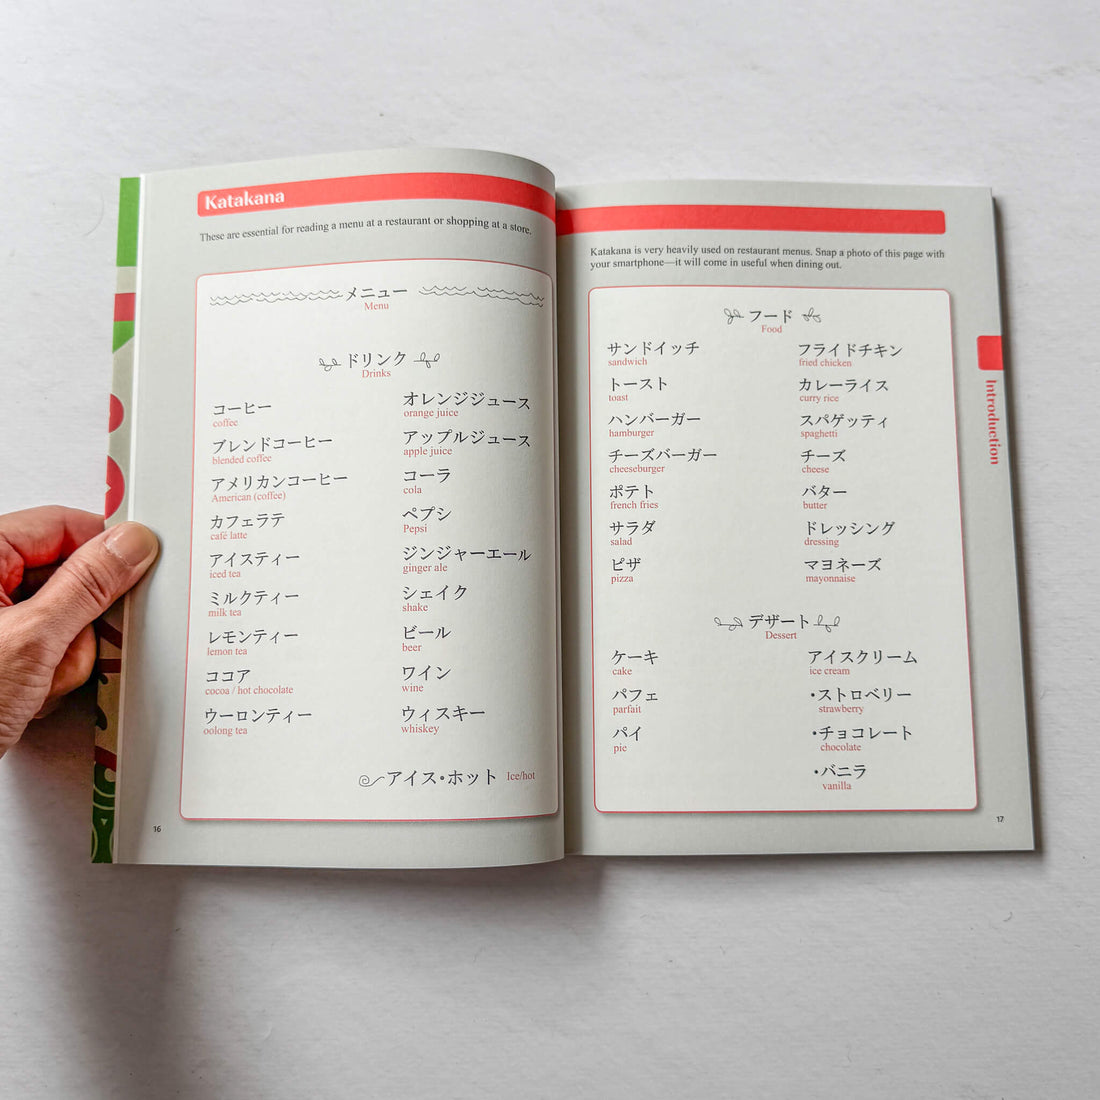 Katakana
These are essential for reading a menu at a restaurant or shopping at a store.
メニュー
Menu
ドリンク
Drinks
コーヒー
coffee
ブレンドコーヒー
blended coffee
アメリカンコーヒー
American (coffee)
カフェラテ
café latte
アイスティー
iced tea
ミルクティー
milk tea
レモンティー
lemon tea
ココア
cocoa / hot chocolate
ウーロンティー
oolong tea
オレンジジュース
orange juice
アップルジュース
apple juice
コーラ
cola
ペプシ
Pepsi
ジンジャーエール
ginger ale
シェイク
shake
ビール
beer
ワイン
wine
ウィスキー
whiskey
アイス・ホット Ice/hot
16
Katakana is very heavily used on restaurant menus. Snap a photo of this page with
your smartphone—it will come in useful when dining out.
フード
Food
サンドイッチ
sandwich
トースト
toast
ハンバーガー
hamburger
チーズバーガー
cheeseburger
ポテト
french fries
サラダ
salad
ピザ
pizza
フライドチキン
fried chicken
カレーライス
curry rice
スパゲッティ
spaghetti
チーズ
cheese
バター
butter
ドレッシング
dressing
マヨネーズ
mayonnaise
デザート
Dessert
ケーキ
cake
パフェ
parfait
パイ
pie
アイスクリーム
ice cream
・ストロベリー
strawberry
・チョコレート
chocolate
・バニラ
vanilla
Introduction
17